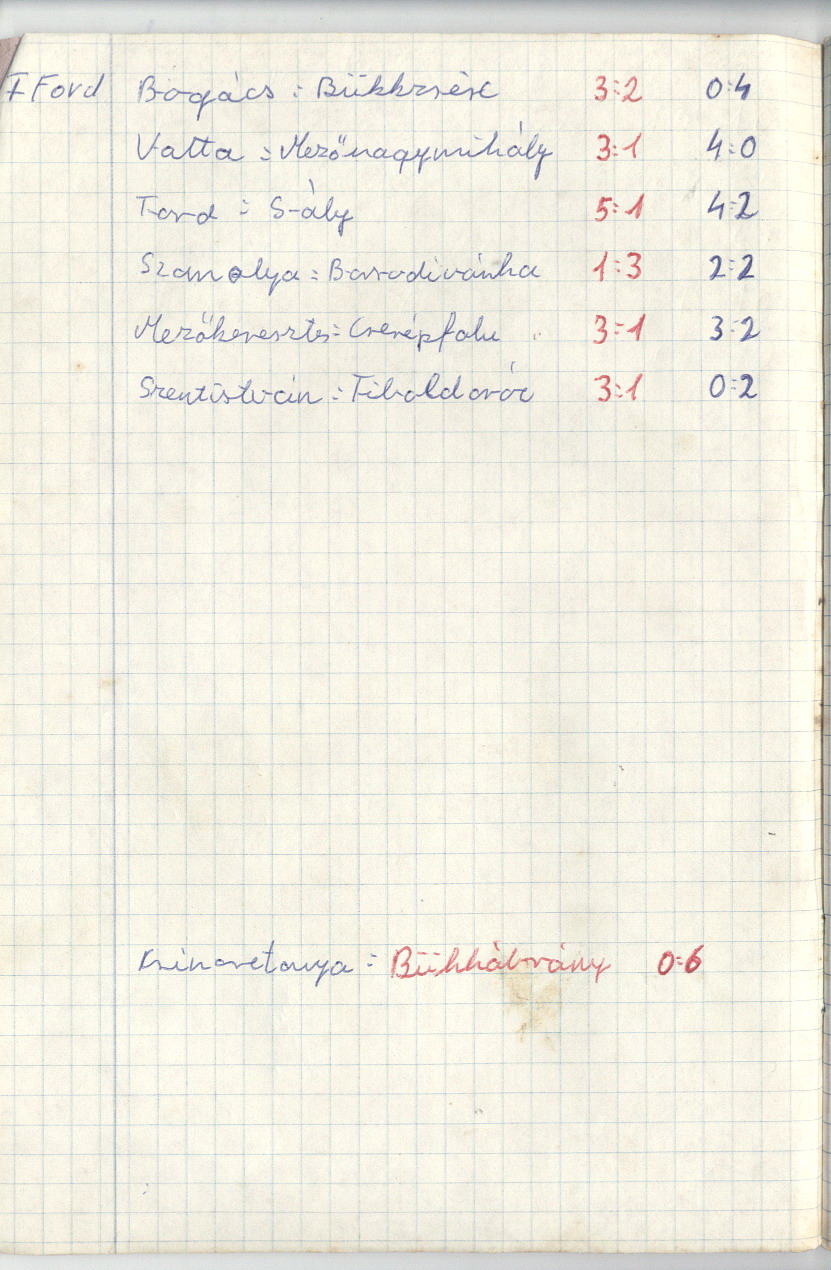 I Ford Bogács : Bükkzsérc 3:2 0:4
Vatta : Mezőnagymihály 3:1 4:0
Tard : Sály 5:1 4:2
Szomolya : Borsodivánka 1:3 2:2
Mezőkeresztes : Cserépfalu 3:1 3:2
Szentistván : Tibolddaróc 3:1 0:2
: Bükkábrány 0:6